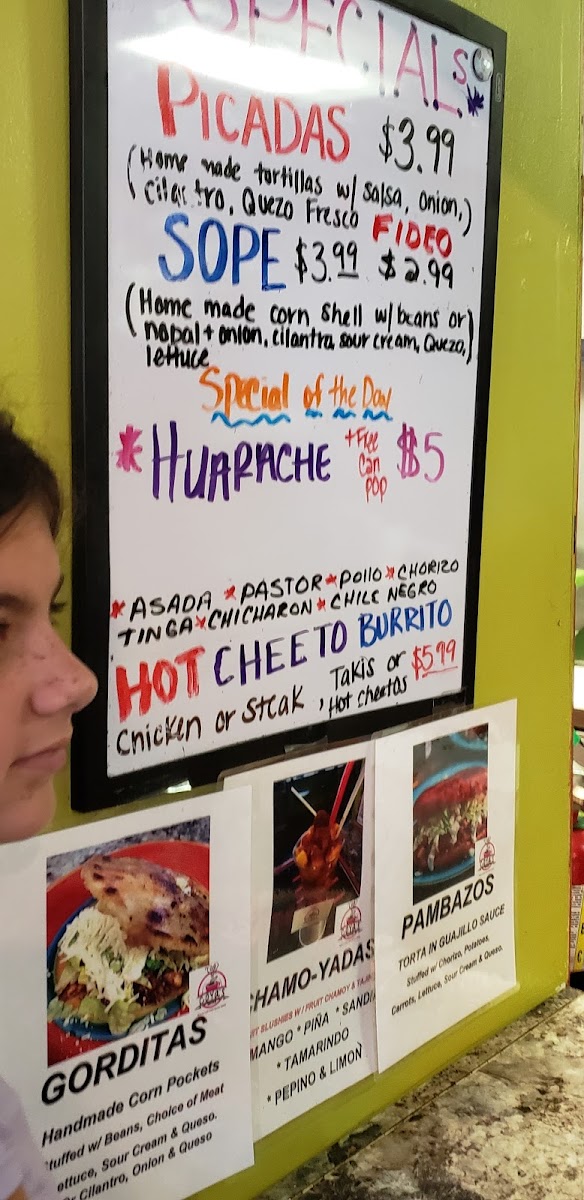 SPECIALS
PICADAS $3.99
(Home made tortillas w/ salsa, onion,
cilantro, Quezo Fresco)
FIDEO
SOPE $3.99 $2.99
(Home made corn shell w/ beans or
nopal + onion, cilantra, sour cream, Quezo,
lettuce)
Special of the Day
*HUARACHE +Free Can POP $5
*ASADA *PASTOR *POllO *CHORIZO
TINGA *CHICHARON *CHILE NEGRO
HOT CHEETO BURRITO
Chicken or Steak, Takis or $5.99
Hot cheetos
GORDITAS
Handmade Corn Pockets
tuffed w/ Beans, Choice of Meat
ettuce, Sour Cream & Queso.
Or Cilantro, Onion & Queso
HAMO-YADAS
SLUSHIES W/ FRUIT CHAMOY & TAJI
MANGO * PIÑA * SANDI
* TAMARINDO
* PEPINO & LIMON
PAMBAZOS
TORTA IN GUAJILLO SAUCE
Stuffed w/ Chorizo, Potatoes,
Carrots, Lettuce, Sour Cream & Queso.